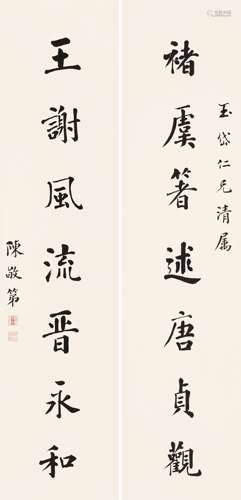 玉岱仁兄清属
褚虞著述唐貞觀
王謝風流晋永和
陳敬第